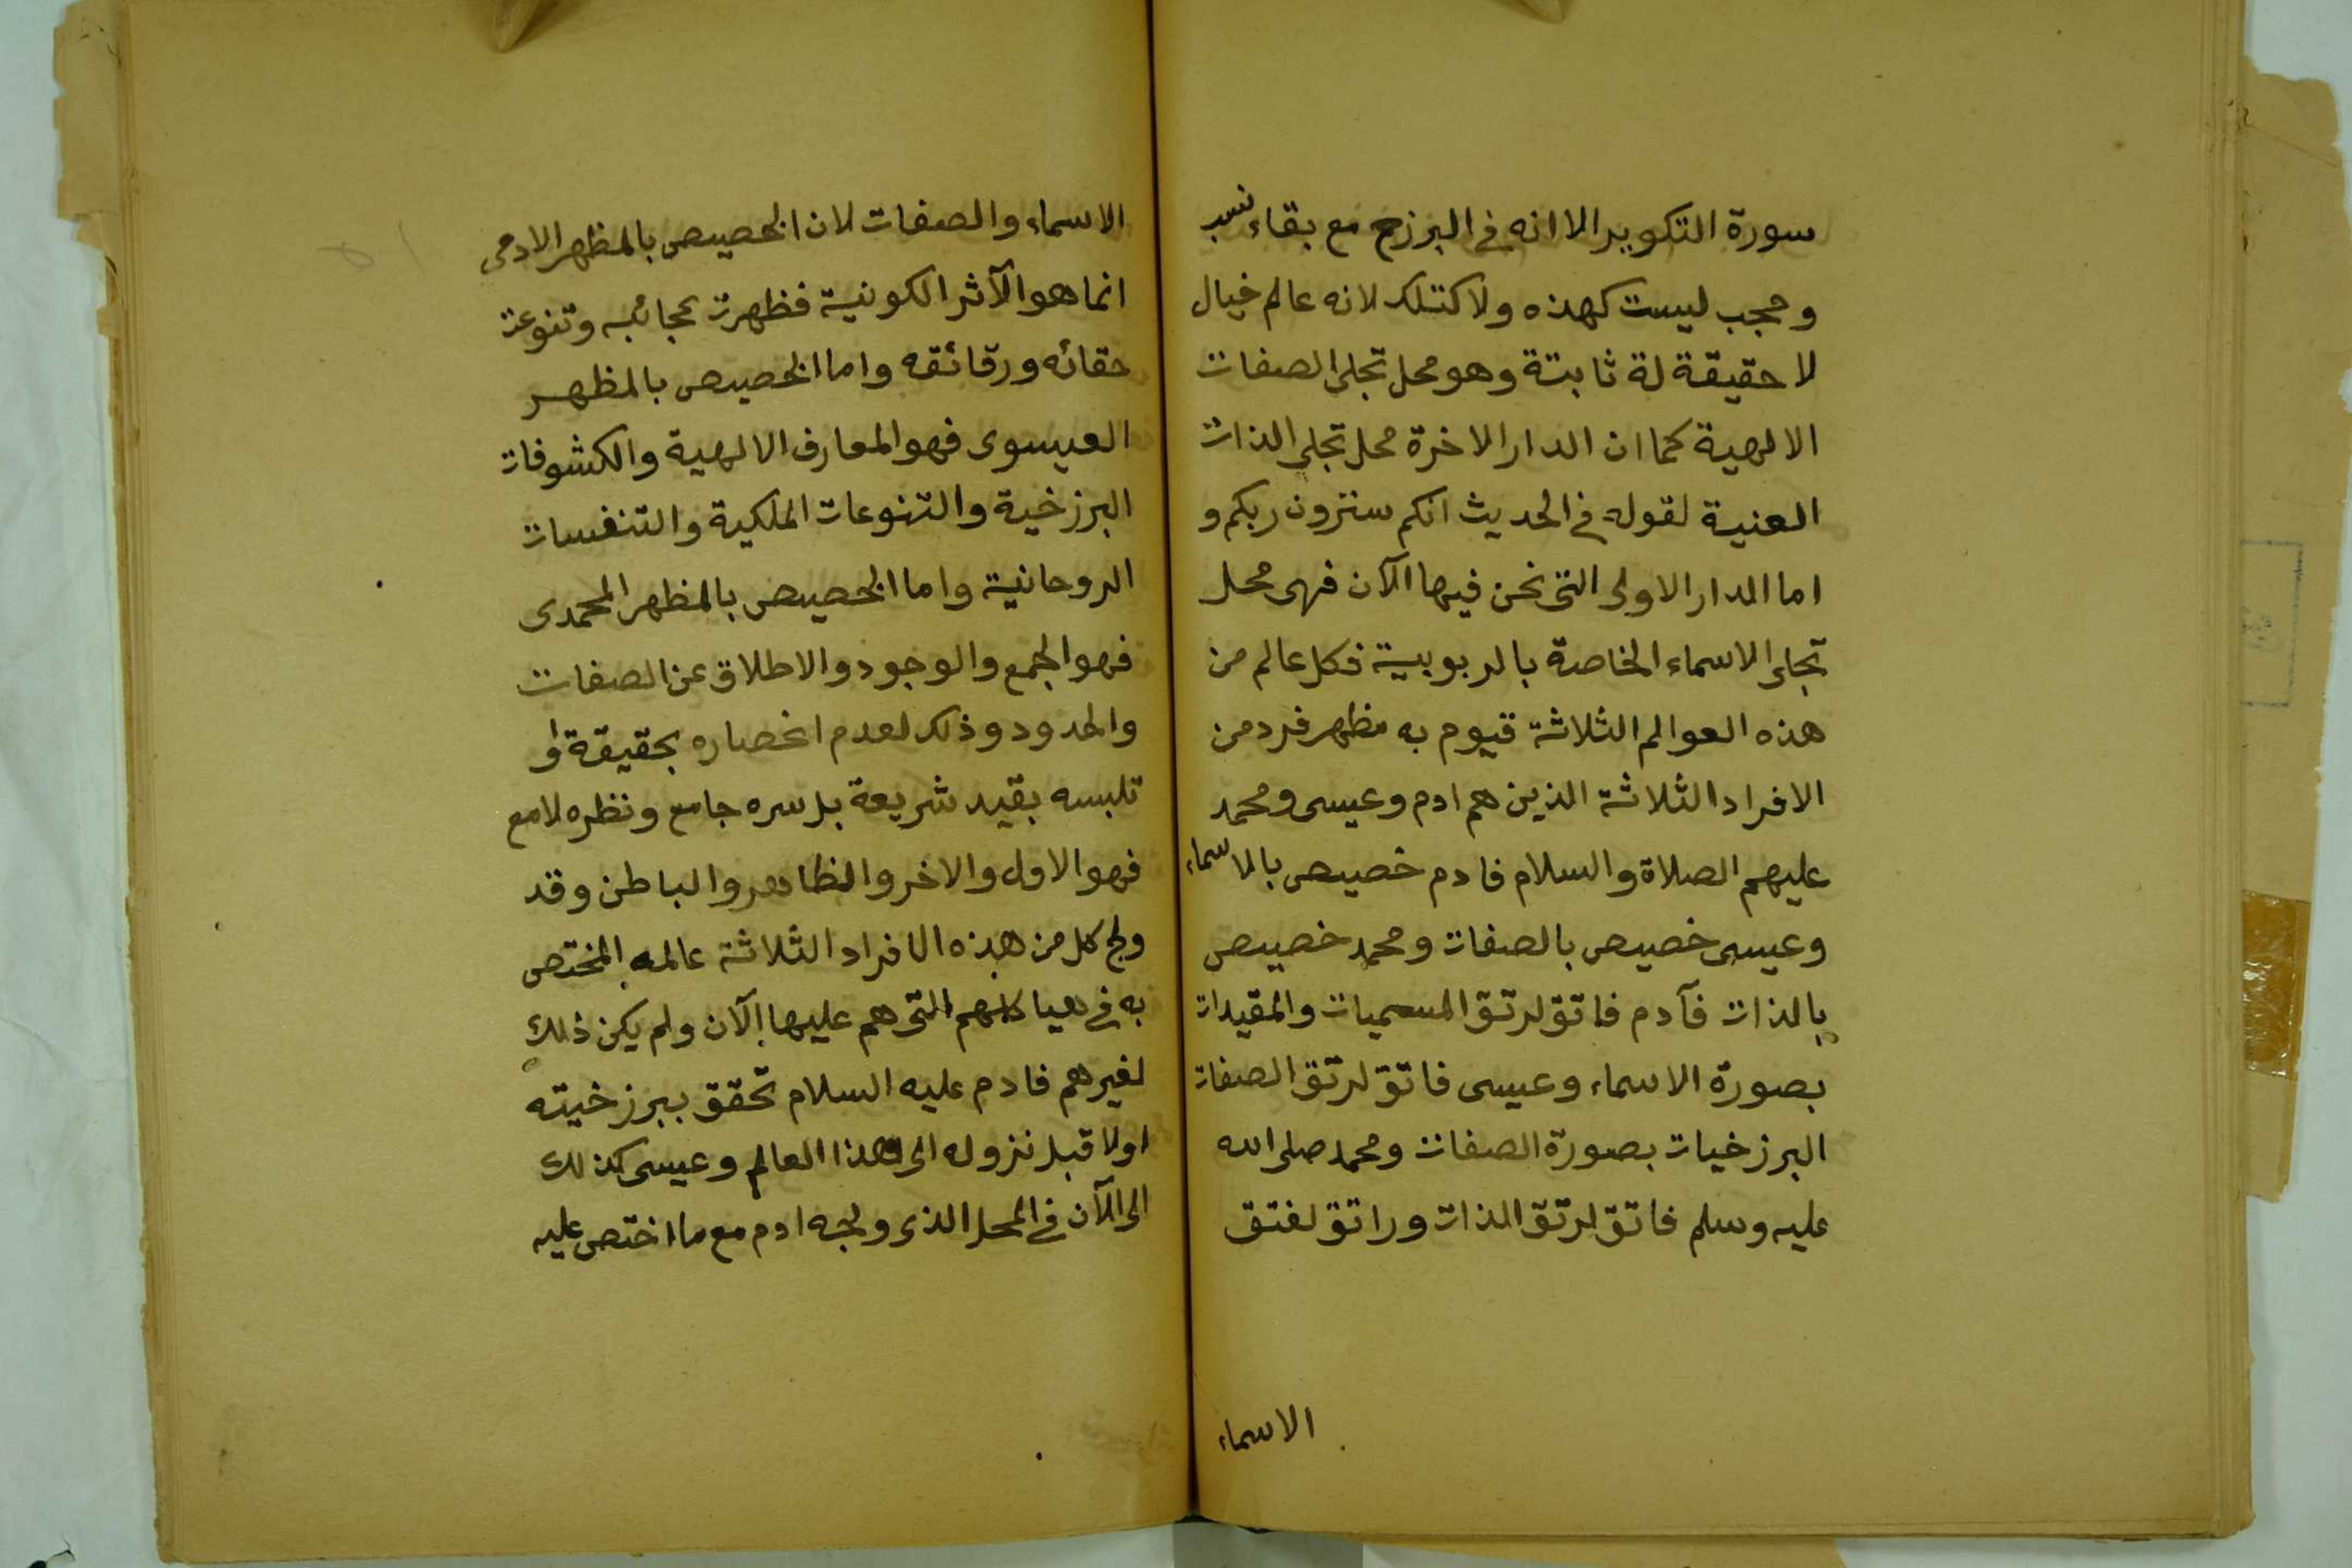 سورة التكوير الا انه في البرزح مع بقاء نسب
وحجب ليست كهذه ولا كتلك لانه عالم خيال
لا حقيقة لة ثابتة وهو محل تجلى الصفات
الالهية كما ان الدار الاخرة محل تجلى الذات
العنية لقوله في الحديث انكم سترون ربكم و
اما الدار الاولى التى نحن فيها الآن فهى محل
تجلى الاسماء الخاصة بالربوبية فكل عالم من
هذه العوالم الثلاثة قيوم به مظهر فرد من
الافراد الثلاثة الذين هم ادم وعيسى ومحمد
عليهم الصلاة والسلام فادم خصيص بالاسماء
وعيسى خصيص بالصفات ومحمد خصيص
بالذات فآدم فاتق لرتق المسميات والمقيدات
بصورة الاسماء وعيسى فاتق لرتق الصفات
البرزخيات بصورة الصفات ومحمد صلى الله
عليه وسلم فاتق لرتق الذات وراتق لفتق
الاسماء
الاسماء والصفات لان الخصيص بالمظهر الادمى
انما هو الآثر الكونية فظهرت عجائبه وتنوعت
حقائه ورقائقه واما الخصيص بالمظهر
العيسوى فهو المعارف الالهية والكشوفات
البرزخية والتنوعات الملكية والتنفسات
الروحانية واما الخصيص بالمظهر المحمدى
فهو الجمع والوجود والاطلاق عن الصفات
والحدود وذلك لعدم انحصاره بحقيقة او
تلبسه بقيد شريعة بل سره جامع ونظره لامع
فهو الاول والاخر والظاهر والباطن وقد
ولج كل من هذه الافراد الثلاثة عالمه المختص
به في هياكلهم التى هم عليها الآن ولم يكن ذلك
لغيرهم فادم عليه السلام تحقق ببرزخيته
اولا قبل نزوله الى هذا العالم وعيسى كذلك
الى الآن في المحل الذى ولجه ادم مع ما اختص عليه